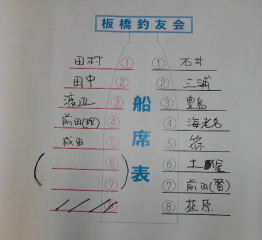 板橋釣友会
船席表
田村 ① ① 石井
田中 ② ② 三浦
渡辺 ③ ③ 豊島
前田(理) ④ ④ 海老名
成田 ⑤ ⑤
⑥ ⑥ 土屋
⑦ ⑦ 前田(智)
⑧ 荻原